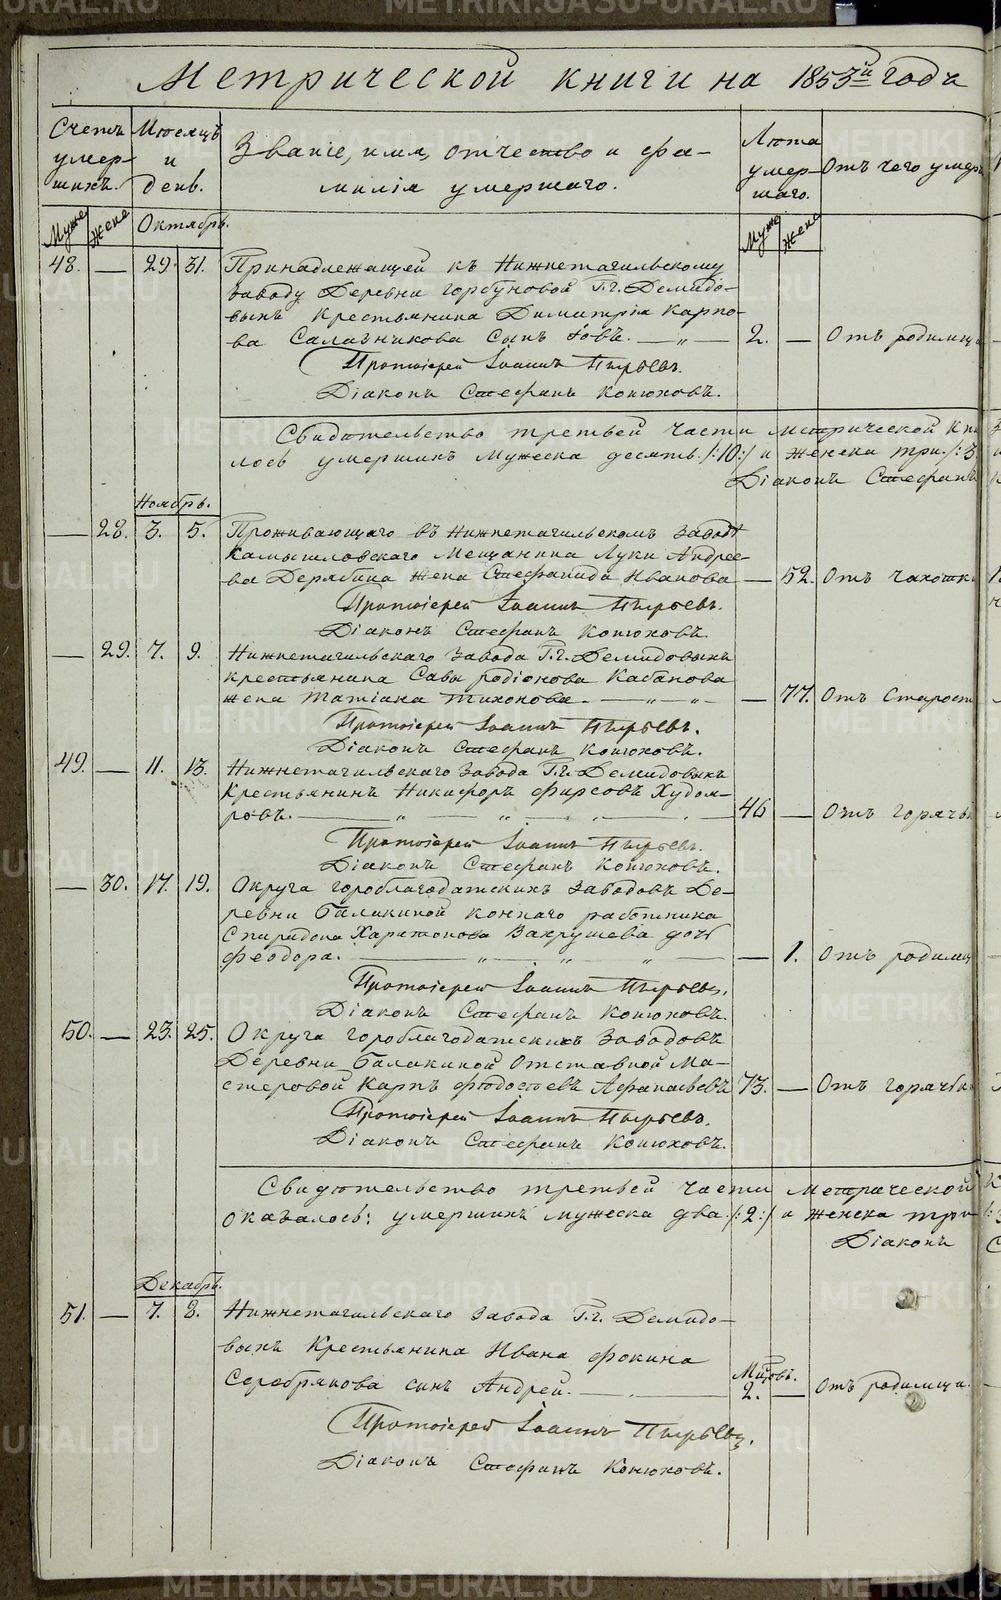 Метрической книги на 1853й годъ
Счетъ умер- шихъ.
Месяцъ и день.
Званіе, имя, отчество и фа-
милія умершаго.
Лѣта умер- шаго.
Отъ чего умеръ
Муже Жене Октябрь. Муже Жене
48. — 29. 31. Принадлежащей къ Нижнетагильскому
заводу Деревни Горбуновой Г.г. Демидо-
выхъ Крестьянина Димитрія Карпо-
ва Сын Іовъ. — „ — 2. — Отъ родимц
Протоіерей Іоаннъ Пырьевъ.
Діаконъ Стефанъ Конюховъ.
Свидѣтельство третьей части метрической кни
лось умершихъ Мужеска десять /:10:/ и женска три /:3
Діаконъ Стефанъ
Ноябрь.
— 28. 3. 5. Проживающаго въ Нижнетагильскомъ Заводѣ
Камышловскаго Мещанина Луки Андрее-
ва Дерябина жена Стефанида Иванова — 52. Отъ чахотки
Протоіерей Іоаннъ Пырьевъ.
Діаконъ Стефанъ Конюховъ.
— 29. 7. 9. Нижнетагильскаго Завода Г.г. Демидовыхъ
крестьянина Савы Родіонова Кабанова
жена Татіана Тихонова. — „ — „ — — 77. Отъ Старост
Протоіерей Іоаннъ Пырьевъ.
Діаконъ Стефанъ Конюховъ.
49. — 11. 13. Нижнетагильскаго Завода Г.г. Демидовыхъ
Крестьянинъ Никифоръ Фирсовъ Худоя-
ровъ. — „ — „ — „ — 46 — Отъ горячк
Протоіерей Іоаннъ Пырьевъ.
Діаконъ Стефанъ Конюховъ.
— 30. 17. 19. Округа Гороблагодатскихъ Заводовъ Де-
ревни Балакиной коннаго работника
Спиридона Харитонова Вахрушева дочь
Феодора. — „ — „ — „ — — 1. Отъ родимц
Протоіерей Іоаннъ Пырьевъ.
Діаконъ Стефанъ Конюховъ.
50. — 23. 25. Округа Гороблагодатскихъ Заводовъ
Деревни Балакиной Отставной Ма-
стеровой Карпъ Афанасьевъ 73. — Отъ горячк
Протоіерей Іоаннъ Пырьевъ.
Діаконъ Стефанъ Конюховъ.
Свидѣтельство третьей части Метрической
Оказалось: умершихъ мужеска два /:2:/ и женска три
Діаконъ
Декабрь.
51. — 7. 8. Нижнетагильскаго Завода Г.г. Демидо-
выхъ Крестьянина Ивана Фокина
Серебрякова сынъ Андрей. — Мцовъ. 2. — Отъ родимца.
Протоіерей Іоаннъ Пырьевъ.
Діаконъ Стефанъ Конюховъ.
METRIKI.GASO-URAL.RU